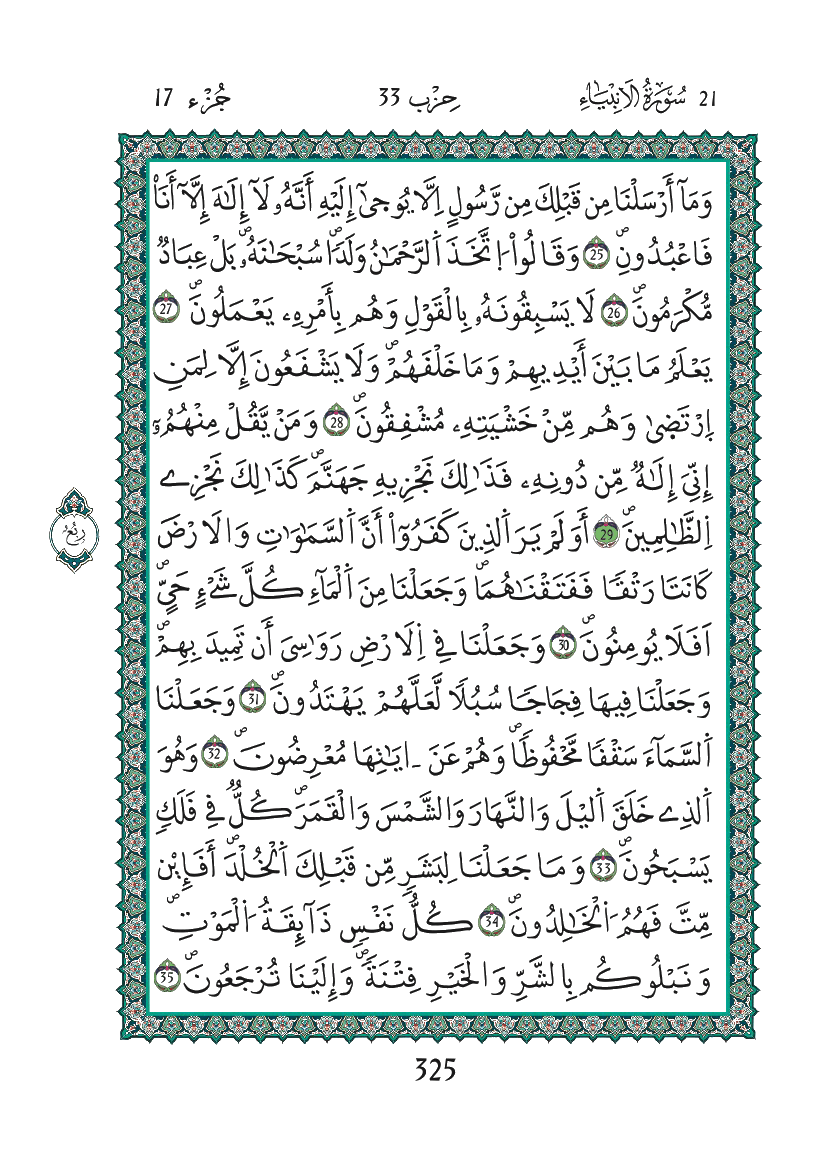 21 سُورَةُ الَانبِيَاءِ حِزْب 33 جُزْء 17
وَمَآ أَرْسَلْنَا مِن قَبْلِكَ مِن رَّسُولٍ اِلَّا يُوحۭيٰٓ إِلَيْهِ أَنَّهُۥ لَآ إِلَٰهَ إِلَّآ أَنَا۠
فَاعْبُدُونِۖ 25 وَقَالُواْ اُ۪تَّخَذَ اَ۬لرَّحْمَٰنُ وَلَداٗۖ سُبْحَٰنَهُۥۖ بَلْ عِبَادٞ
مُّكْرَمُونَۖ 26 لَا يَسْبِقُونَهُۥ بِالْقَوْلِ وَهُم بِأَمْرِهِۦ يَعْمَلُونَۖ 27
يَعْلَمُ مَا بَيْنَ أَيْدِيهِمْ وَمَا خَلْفَهُمْۖ وَلَا يَشْفَعُونَ إِلَّا لِمَنِ
اِ۪رْتَضۭيٰ وَهُم مِّنْ خَشْيَتِهِۦ مُشْفِقُونَۖ 28 وَمَنْ يَّقُلْ مِنْهُمُۥٓ
إِنِّيَ إِلَٰهٞ مِّن دُونِهِۦ فَذَٰلِكَ نَجْزِيهِ جَهَنَّمَۖ كَذَٰلِكَ نَجْزِے
اِ۬لظَّٰلِمِينَۖ 29 أَوَلَمْ يَرَ اَ۬لذِينَ كَفَرُوٓاْ أَنَّ اَ۬لسَّمَٰوَٰتِ وَالَارْضَ
كَانَتَا رَتْقاٗ فَفَتَقْنَٰهُمَاۖ وَجَعَلْنَا مِنَ اَ۬لْمَآءِ كُلَّ شَےْءٍ حَيٍّۖ
اَفَلَا يُومِنُونَۖ 30 وَجَعَلْنَا فِے اِ۬لَارْضِ رَوَٰسِيَ أَن تَمِيدَ بِهِمْۖ
وَجَعَلْنَا فِيهَا فِجَاجاٗ سُبُلاٗ لَّعَلَّهُمْ يَهْتَدُونَۖ 31 وَجَعَلْنَا
اَ۬لسَّمَآءَ سَقْفاٗ مَّحْفُوظاٗۖ وَهُمْ عَنَ ـ اٰيَٰتِهَا مُعْرِضُونَۖ 32 وَهُوَ
اَ۬لذِے خَلَقَ اَ۬ليْلَ وَالنَّهَارَ وَالشَّمْسَ وَالْقَمَرَۖ كُلّٞ فِے فَلَكٖ
يَسْبَحُونَۖ 33 وَمَا جَعَلْنَا لِبَشَرٖ مِّن قَبْلِكَ اَ۬لْخُلْدَۖ أَفَإِيْن
مِّتَّ فَهُمُ اُ۬لْخَٰلِدُونَۖ 34 كُلُّ نَفْسٖ ذَآئِقَةُ اُ۬لْمَوْتِۖ
وَنَبْلُوكُم بِالشَّرِّ وَالْخَيْرِ فِتْنَةٗۖ وَإِلَيْنَا تُرْجَعُونَۖ 35
رُبُع
325